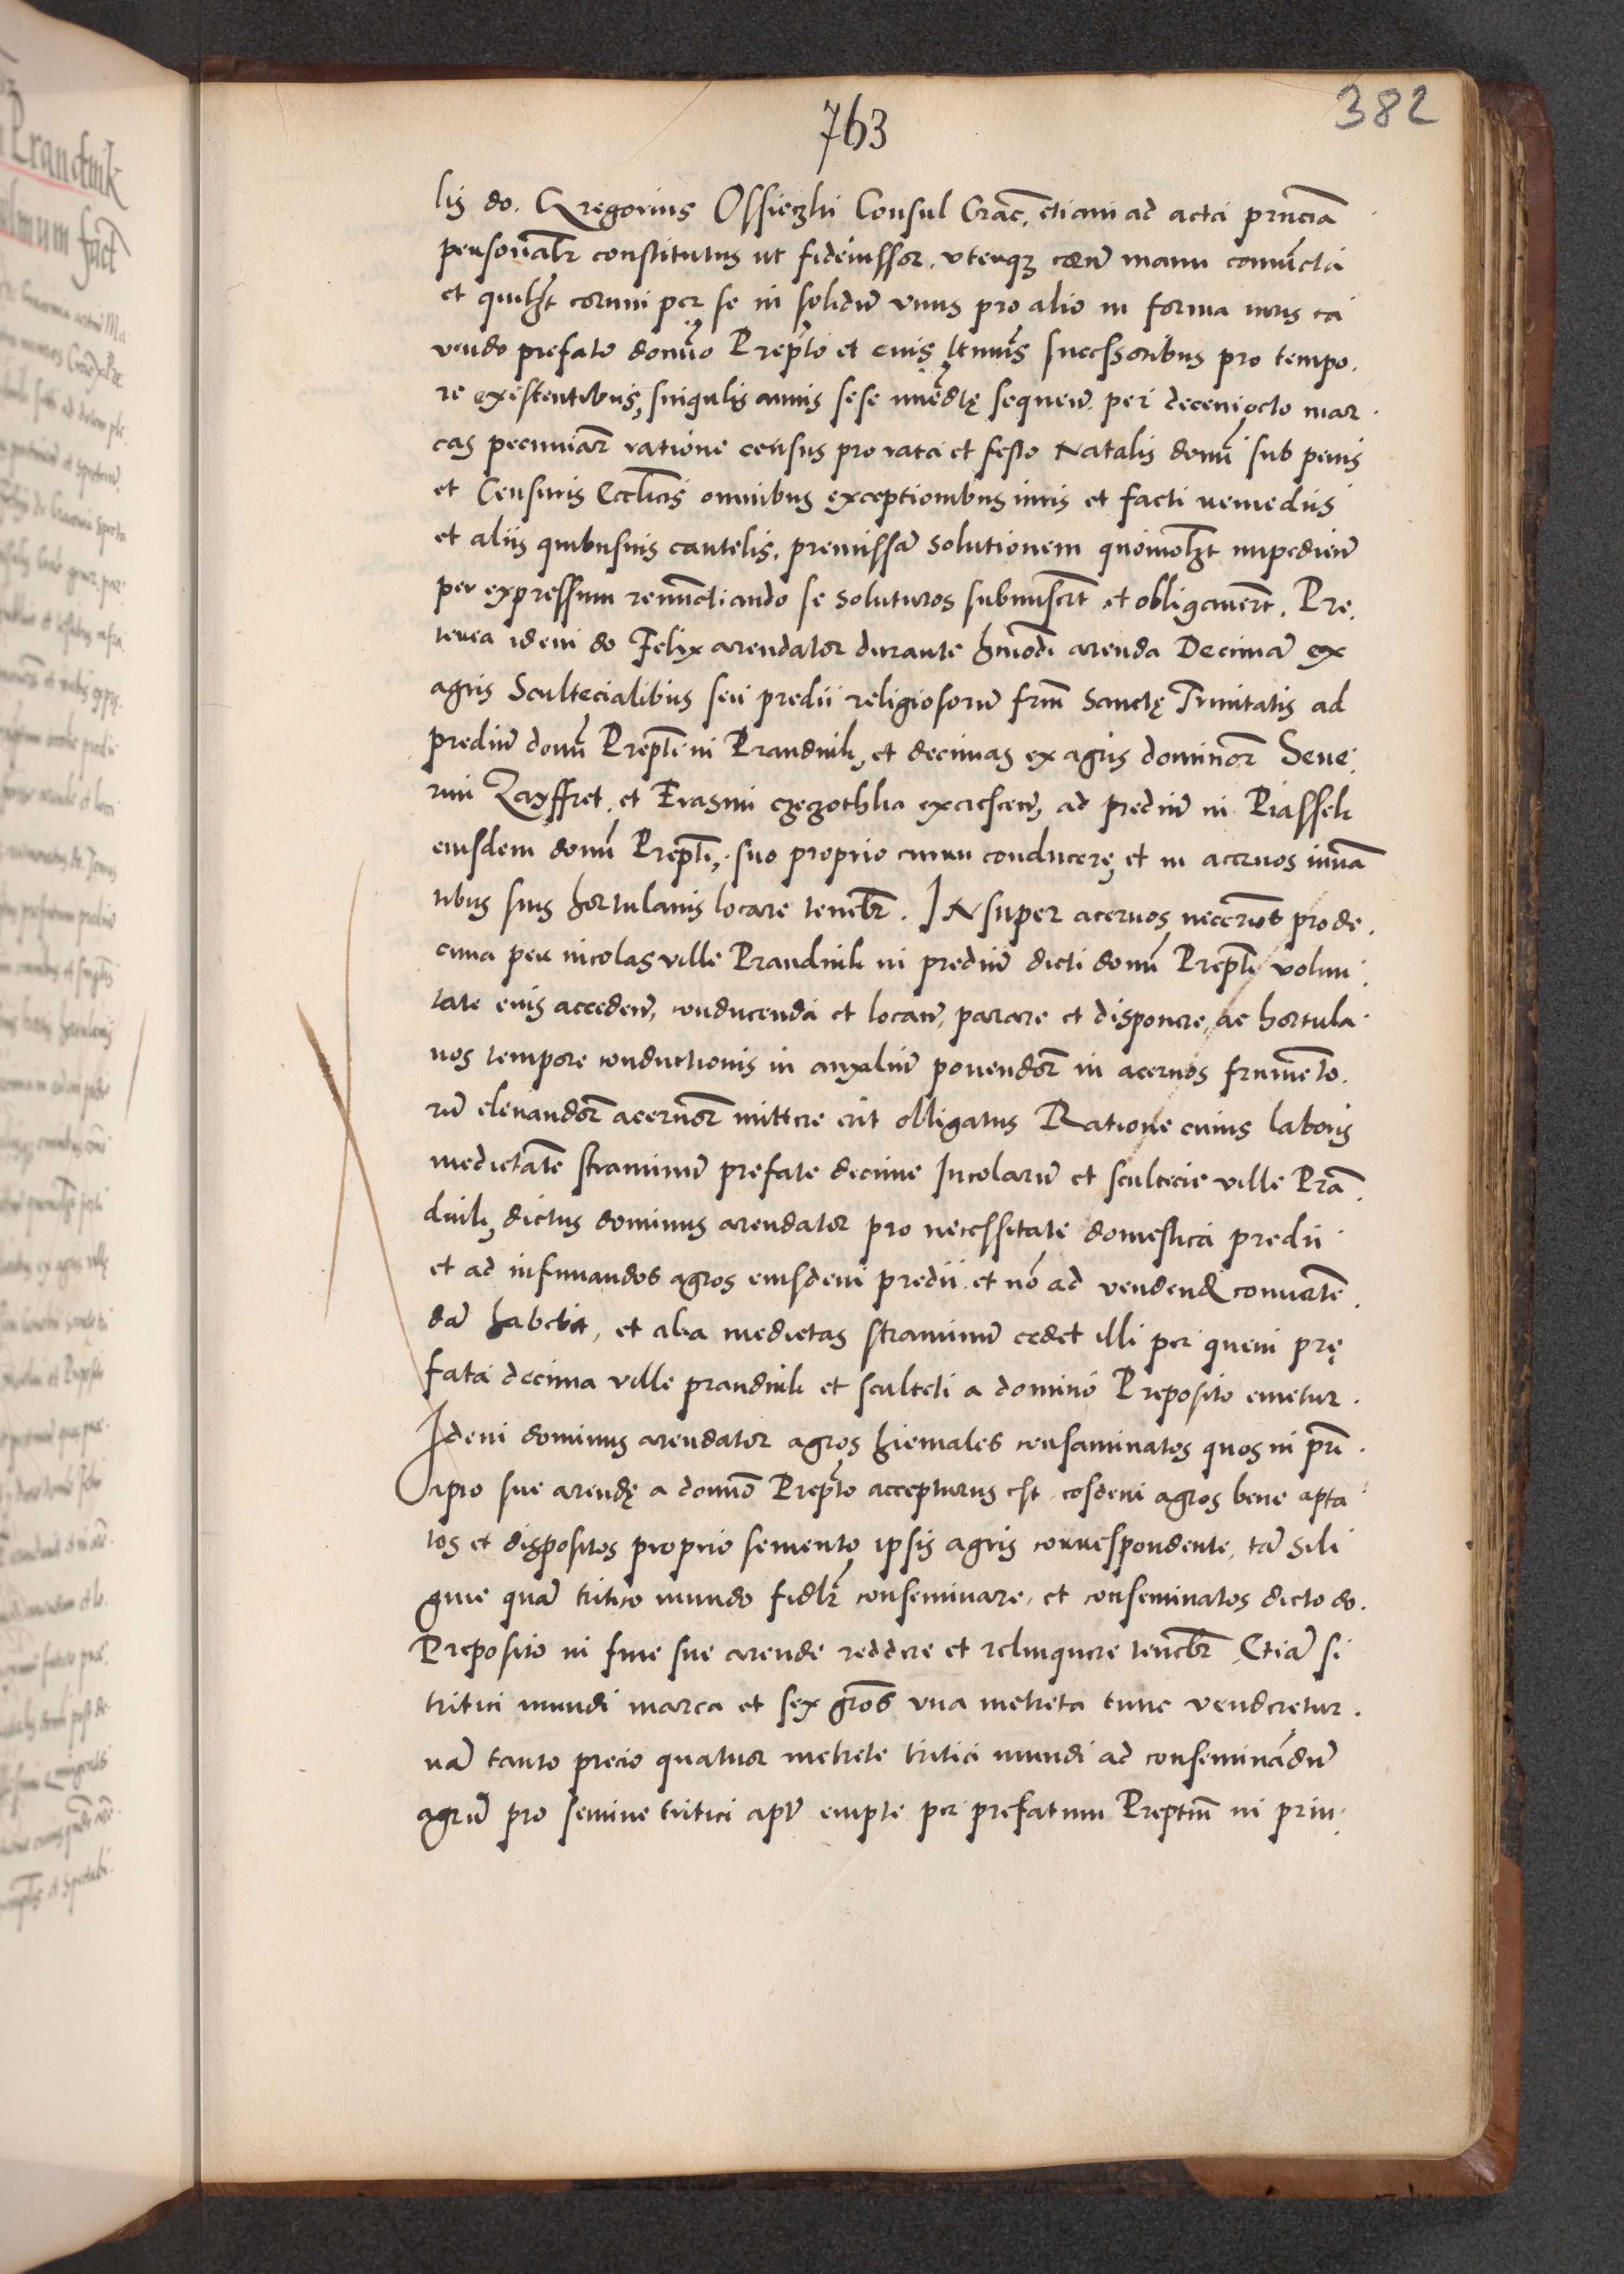 763
382
lis do. Gregorius Ossieczki Consul Crac̃. etiam ad acta prñcia
personalr̃ constitutus ut fideiussor. uterqz eorũ manu coniũcta
et quilz̃t eorum per se in solidũ vnus pro alio in forma iuris ca
uendo prefato domĩo Prepto et eius ltimis successoribus pro tempo.
re existentibus, singulis annis sese imẽdtę sequeñ. per decemocto mar
cas pecuniar̃ ratione census pro rata et festo Natalis domĩ sub penis
et Censuris Eccl̃icis omnibus exceptionibus iuris et facti remediis
et aliis quibusuis cautelis, premissã solutionem quomolz̃t impedieñ
per expressum renũctiando se soluturos submiser̃t et obligauer̃t. Pre.
terea idem do Felix arendator durante hmõdi arenda Decimã ex
agris Scultecialibus seu predii religiosorũ frm̃ Sanctę Trinitatis ad
prediũ domĩ Prepti in Prandnik, et decimas ex agris dominor̃ Seue.
rini Zayffret. et Erasmi czeczothka excrescen̄, ad prediũ in Piassek
eiusdem domĩ Prepti, suo proprio curru conducere, et in aceruos iuuã
tibus suis hortulanis locare tenebr̃. INsuper aceruos, necerios pro de.
cima per incolas ville Prandnik in prediũ dicti domĩ Prepti volun
tate eius acceden̄, conducenda et locan̄, parare et disponere, ac hortula.
nos tempore conductionis in auxiliũ ponendor̃ in aceruos frumẽto.
rũ eleuandor̃ aceruor̃ mittere erit obligatus Ratione cuius laboris
medietatẽ straminũ prefate decime Incolarũ et scultecie ville Prã.
dnik, dictus dominus arendator pro necessitate domestica predii
et ad infimandos agros eiusdem predii. et nõ ad vendend conuertẽ.
dã habebit, et alia medietas straminũ cedet illi per quem prę
fata decima ville prandnik et sculteti a domino Preposito emetur.
Idem dominus arendator agros hiemales consaminatos quos in prĩ.
cipio sue arendę a domĩo Prepto accepturus est. eosdem agros bene apta
tos et dispositos proprio semento ipsis agris correspondente, tã sili
gine quã tritico mundo fidlr̃ conseminare, et conseminatos dicto do.
Preposito in fine sue arende reddere et relinquere tenebr̃ Etiã si
tritici mundi marca et sex gros̃ vna metreta tunc venderetur.
nã tanto precio quatuor metrete tritici mundi ad conseminãdũ
agrũ pro semine tritici aptũ empte per prefatum Preptm̃ in prin.